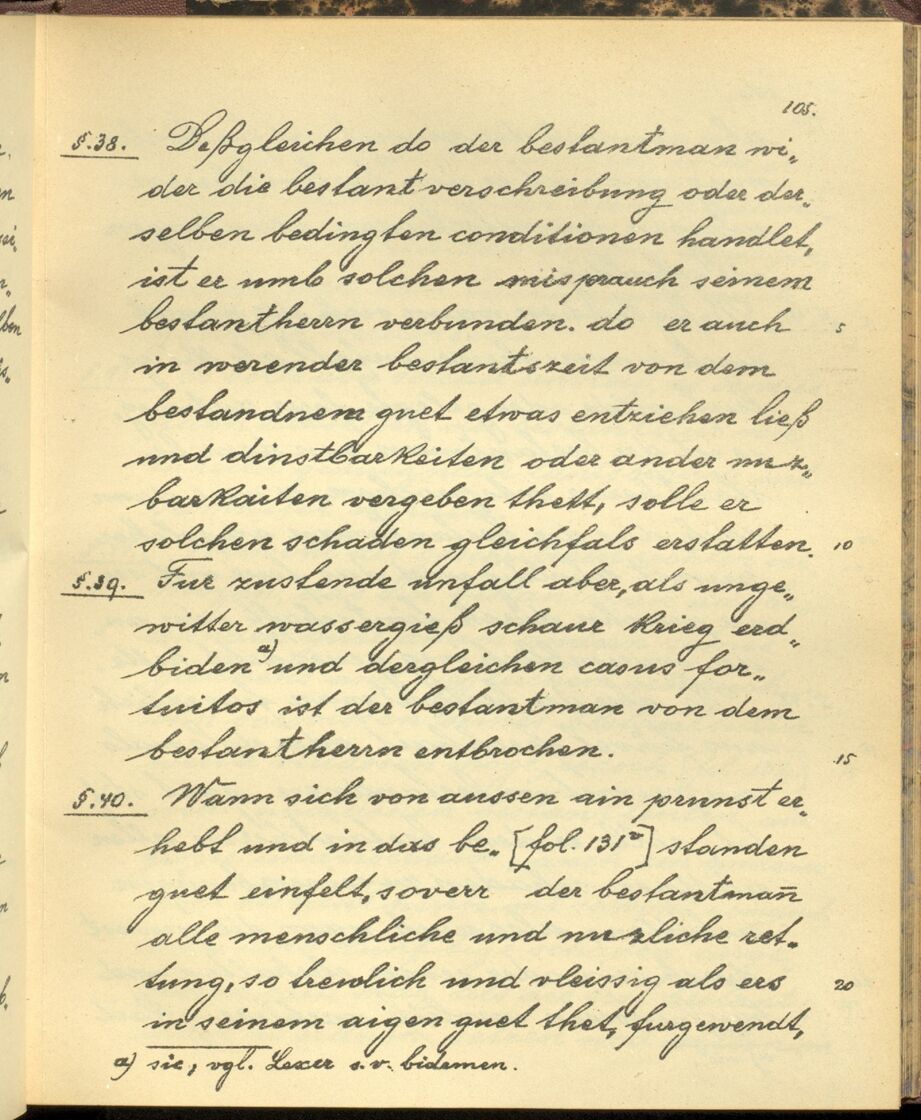 105.
§.38. Deßgleichen do der bestantman wi„
der die bestant verschreibung oder der„
selben bedingten conditionen handlet,
ist er umb solchen misprauch seinem
bestantherrn verbunden. do er auch 5
in werender bestantszeit von dem
bestandnem guet etwas entziehen ließ
und dinstbarkeiten oder ander nuz„
barkaiten vergeben thett, solle er
solchen schaden gleichfals erstatten. 10
§.39. Fur zustende unfall aber, als unge„
witter wassergieß schaur krieg erd„
biden a) und dergleichen casus for„
tuitos ist der bestantman von dem
bestantherrn entbrochen. 15
§.40. Wann sich von aussen ain prunst er„
hebt und in das be„ [fol. 131v] standen
guet einfelt, soverr der bestantman̄
alle menschliche und nuzliche ret„
tung, so trewlich und vleissig als ers 20
in seinem aigen guet thet, furgewendt,
a) sic, vgl. Lexer s.v. bidemen.